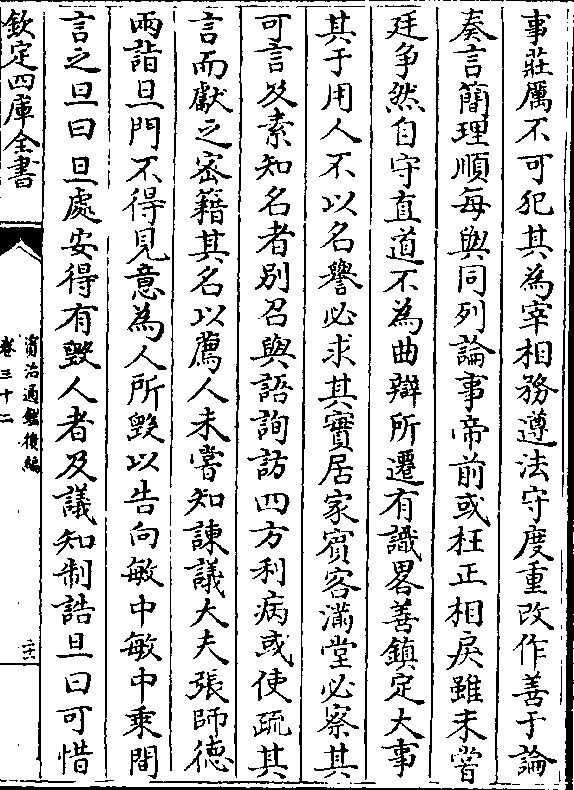 事莊厲不可犯其為宰相務遵法守度重改作善于論
奏言簡理順每與同列論事帝前或枉正相戾雖未嘗
廷爭然自守直道不為曲辯所遷有識畧善鎮定大事
其于用人不以名譽必求其實居家賓客滿堂必察其
可言及素知名者別召與語詢訪四方利病或使疏其
言而獻之密籍其名以薦人未嘗知諫議大夫張師德
兩詣旦門不得見意為人所毀以告向敏中敏中乘間
言之旦曰旦處安得有毀人者及議知制誥旦曰可惜
欽定四庫全書
資治通鑑後編
卷三十二